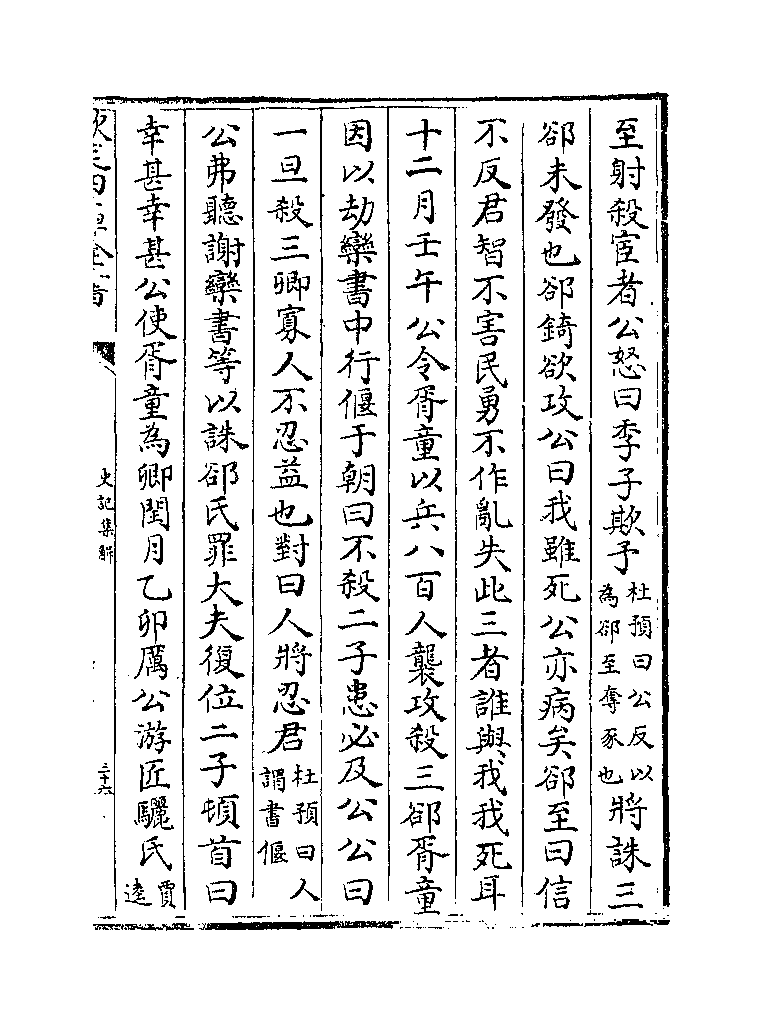 至射殺宦者公怒曰季子欺予杜預曰公反以為郤至奪豕也將誅三
郤未發也郤錡欲攻公曰我雖死公亦病矣郤至曰信
不反君智不害民勇不作亂失此三者誰與我我死耳
十二月壬午公令胥童以兵八百人襲攻殺三郤胥童
因以劫欒書中行偃于朝曰不殺二子患必及公公曰
一旦殺三卿寡人不忍益也對曰人將忍君杜預曰人謂書偃
公弗聽謝欒書等以誅郤氏罪大夫復位二子頓首曰
幸甚幸甚公使胥童為卿閏月乙卯厲公游匠驪氏賈逵
欽定四庫全書
史記集解
三十六